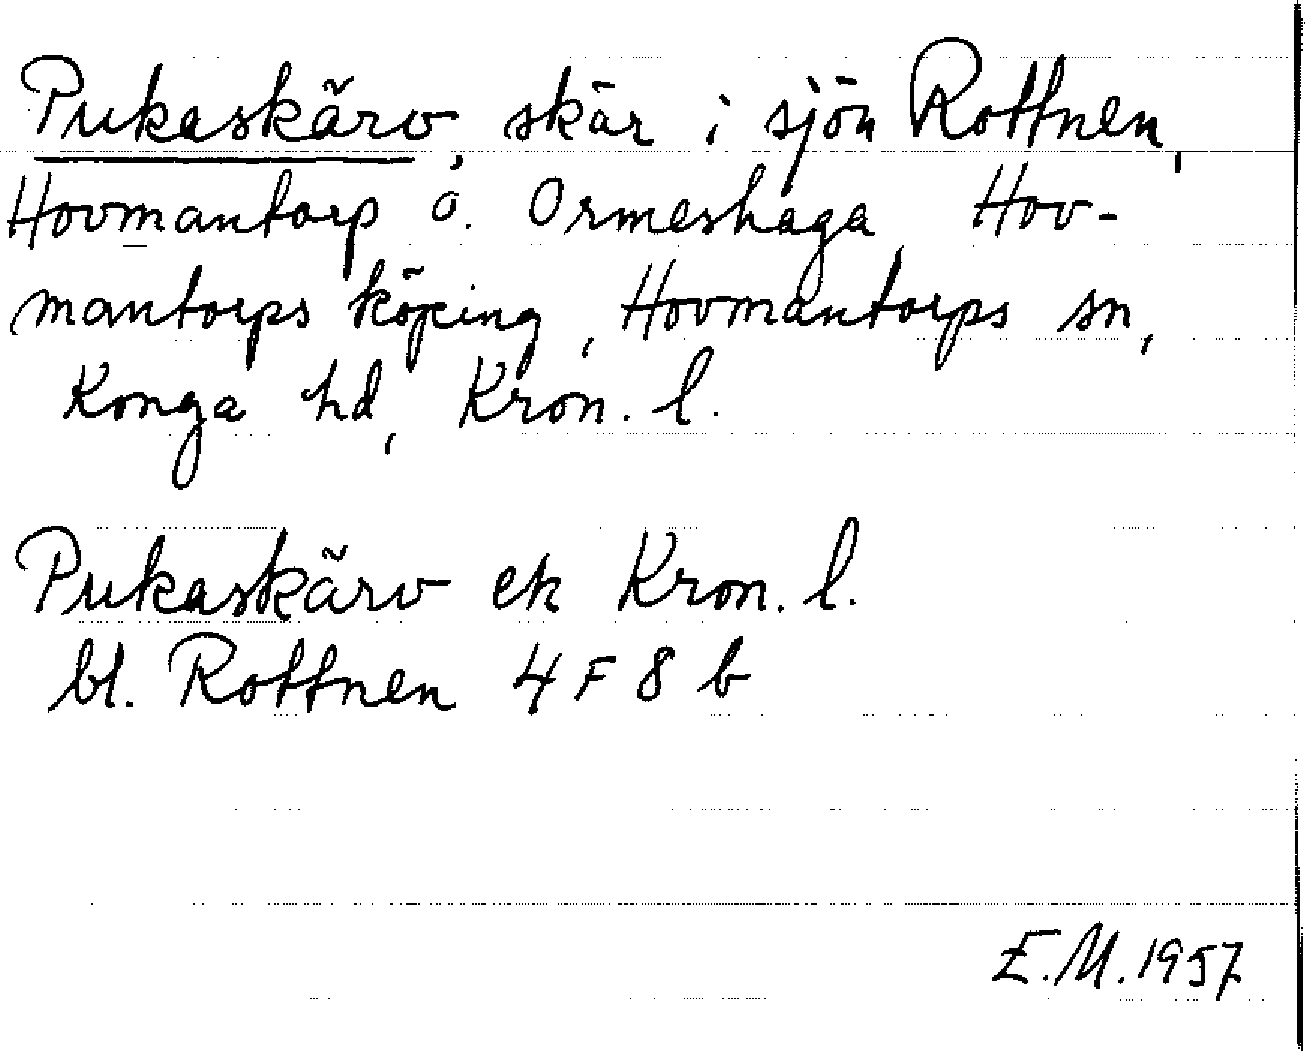 Pukaskärv, skär i sjön Rottnen,
Hovmantorp o. Ormeshaga, Hov-
mantorps köping, Hovmantorps sn,
Konga hd, Kron. l.
Pukaskärv ek Kron. l.
bl. Rottnen 4 F 8 b
E.M. 1957